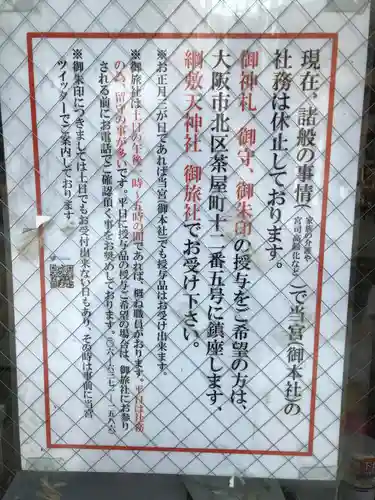 現在、諸般の事情(家族の介護や宮司高齢化など)で当宮(御本社)の
社務は休止しております。
御神札、御守、御朱印の授与をご希望の方は、
大阪市北区茶屋町十二番五号に鎮座します、
綱敷天神社 御旅社でお受け下さい。
※お正月三が日であれば当宮(御本社)でも授与品はお受け出来ます。
※御旅社は土日の午後一時~五時の間であれば、概ね職員がおります。平日は社務
の為、留守の事が多いです。平日に授与品の授与ご希望の場合は、御旅社にお参り
される前にお電話でご確認頂く事をお奨めしております。
※御朱印につきましては土日でもお受付出来ない日もあり、その時は事前に当宮
ツイッターでご案内しております